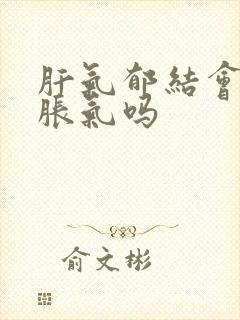 肝氣郁結會
脹氣吗
俞文彬